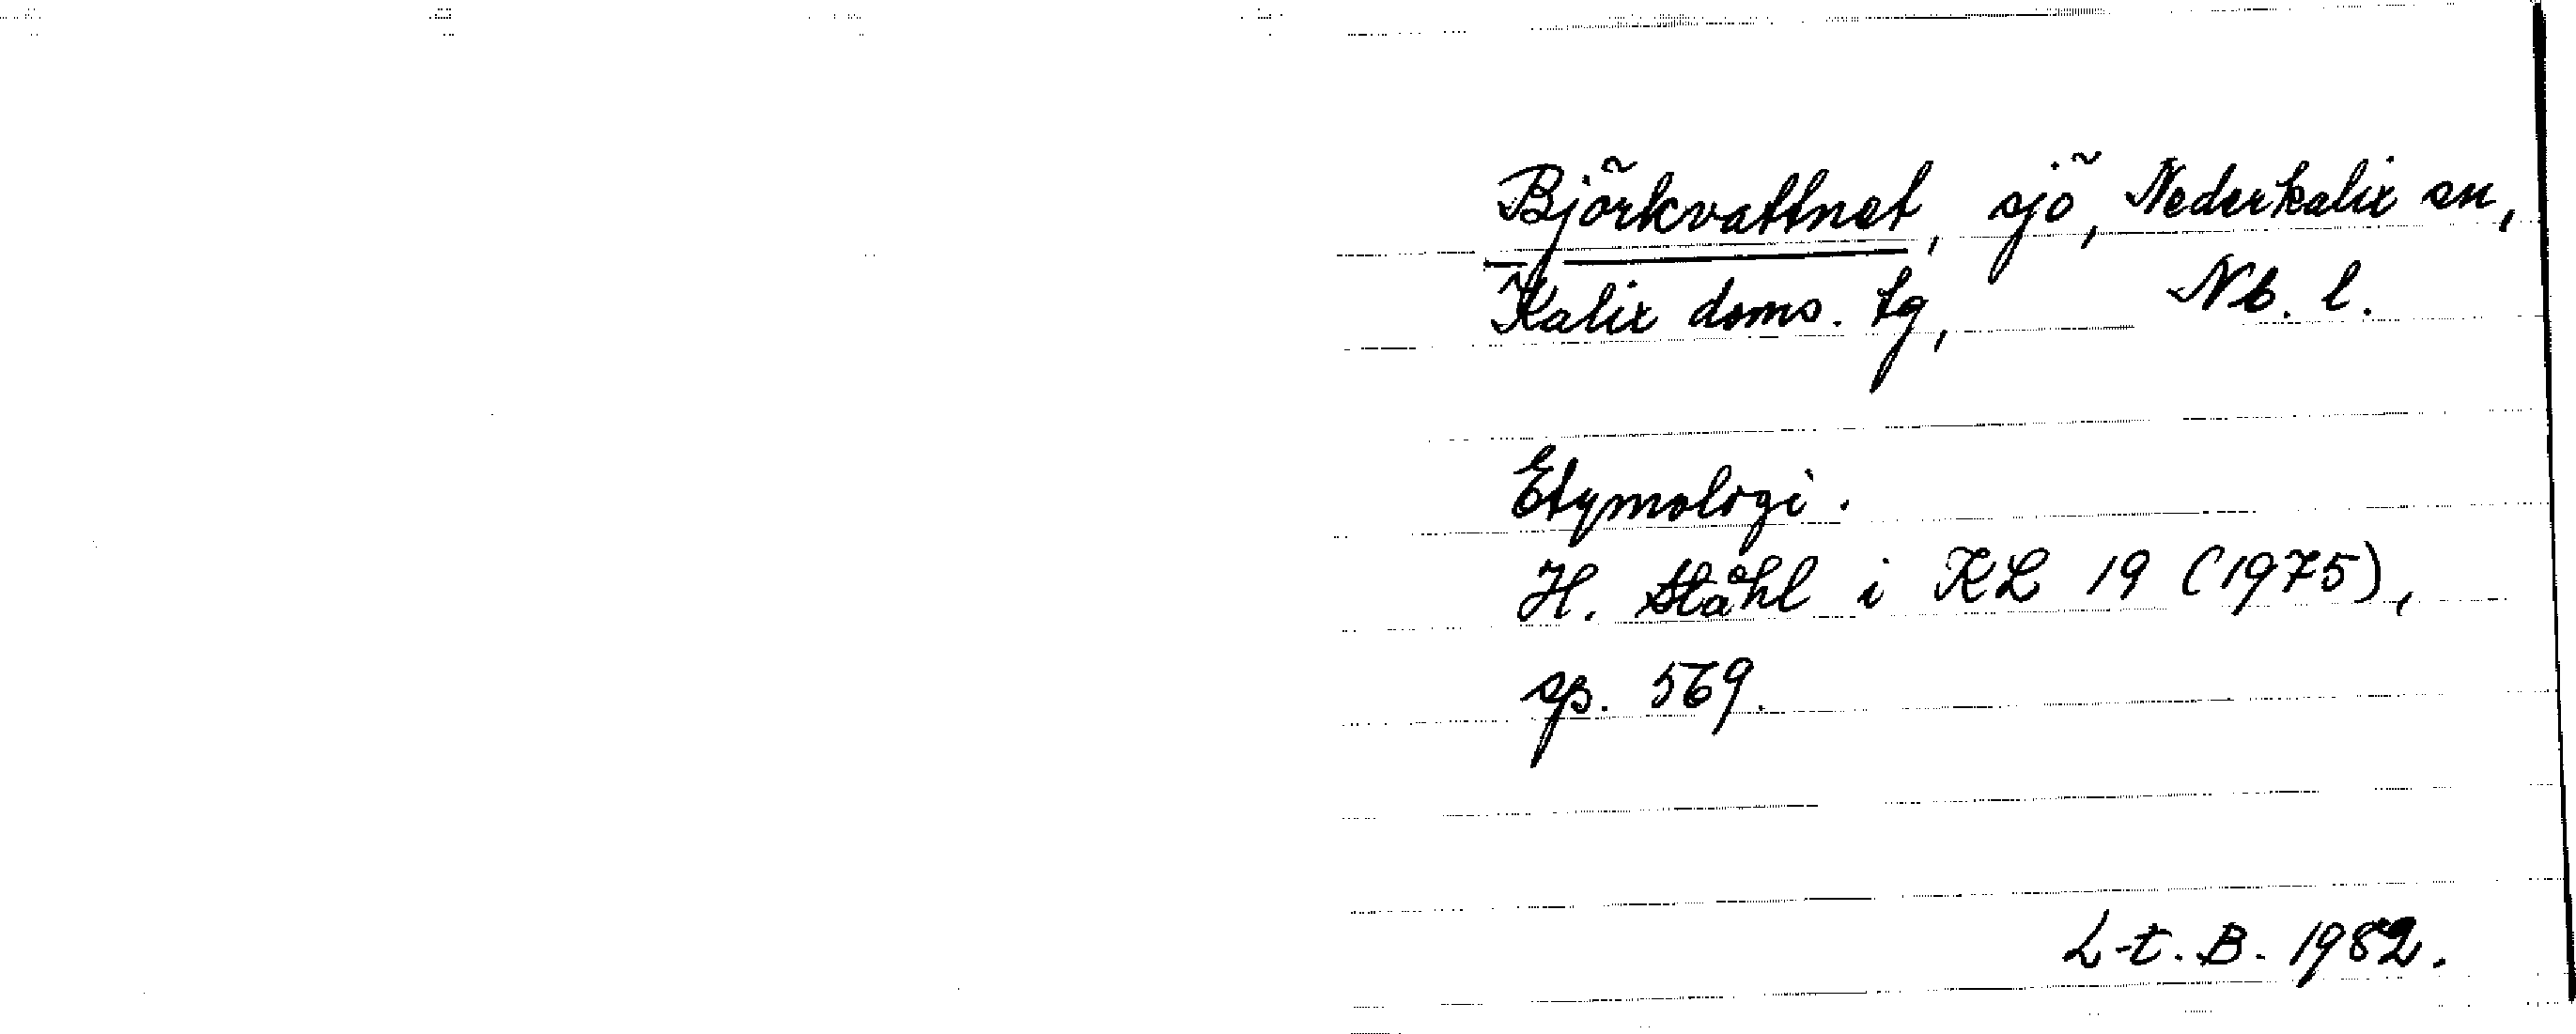 Björkvattnet, sjö, Nederkalix sn,
Kalix doms. tg, Nb. l.
Etymologi.
H. Ståhl i KL 19 (1975),
sp. 569.
L-t. B. 1982.